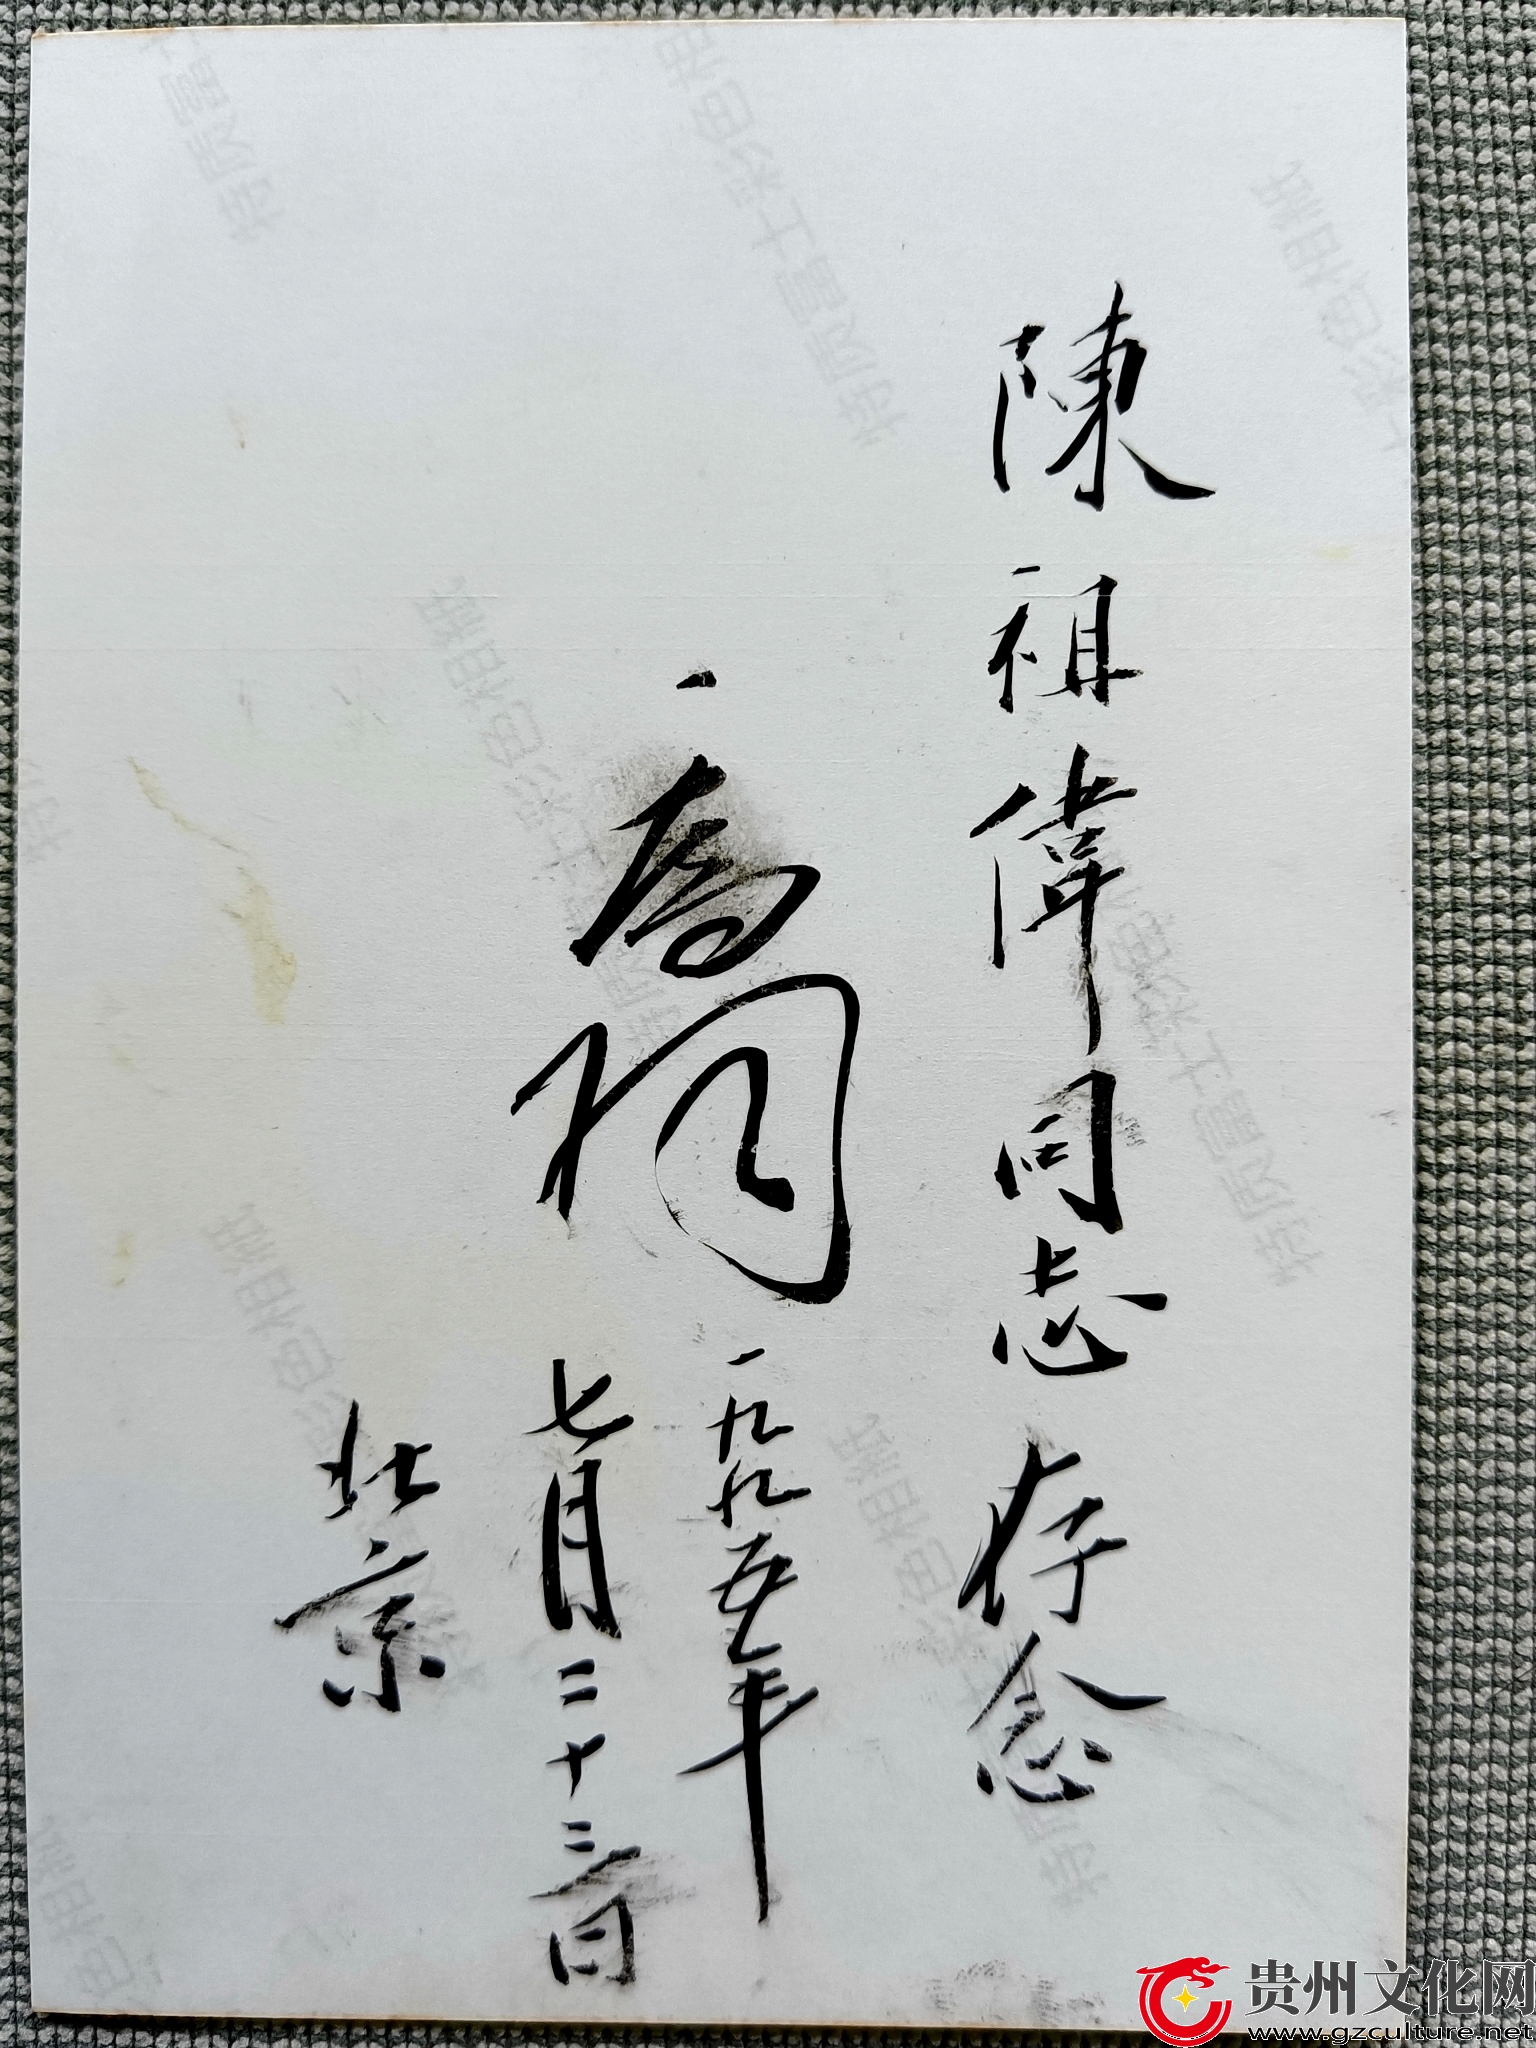 陳祖偉同志存念
喬羽
一九九五年
七月二十三日
北京
贵州文化网
www.gzculture.net